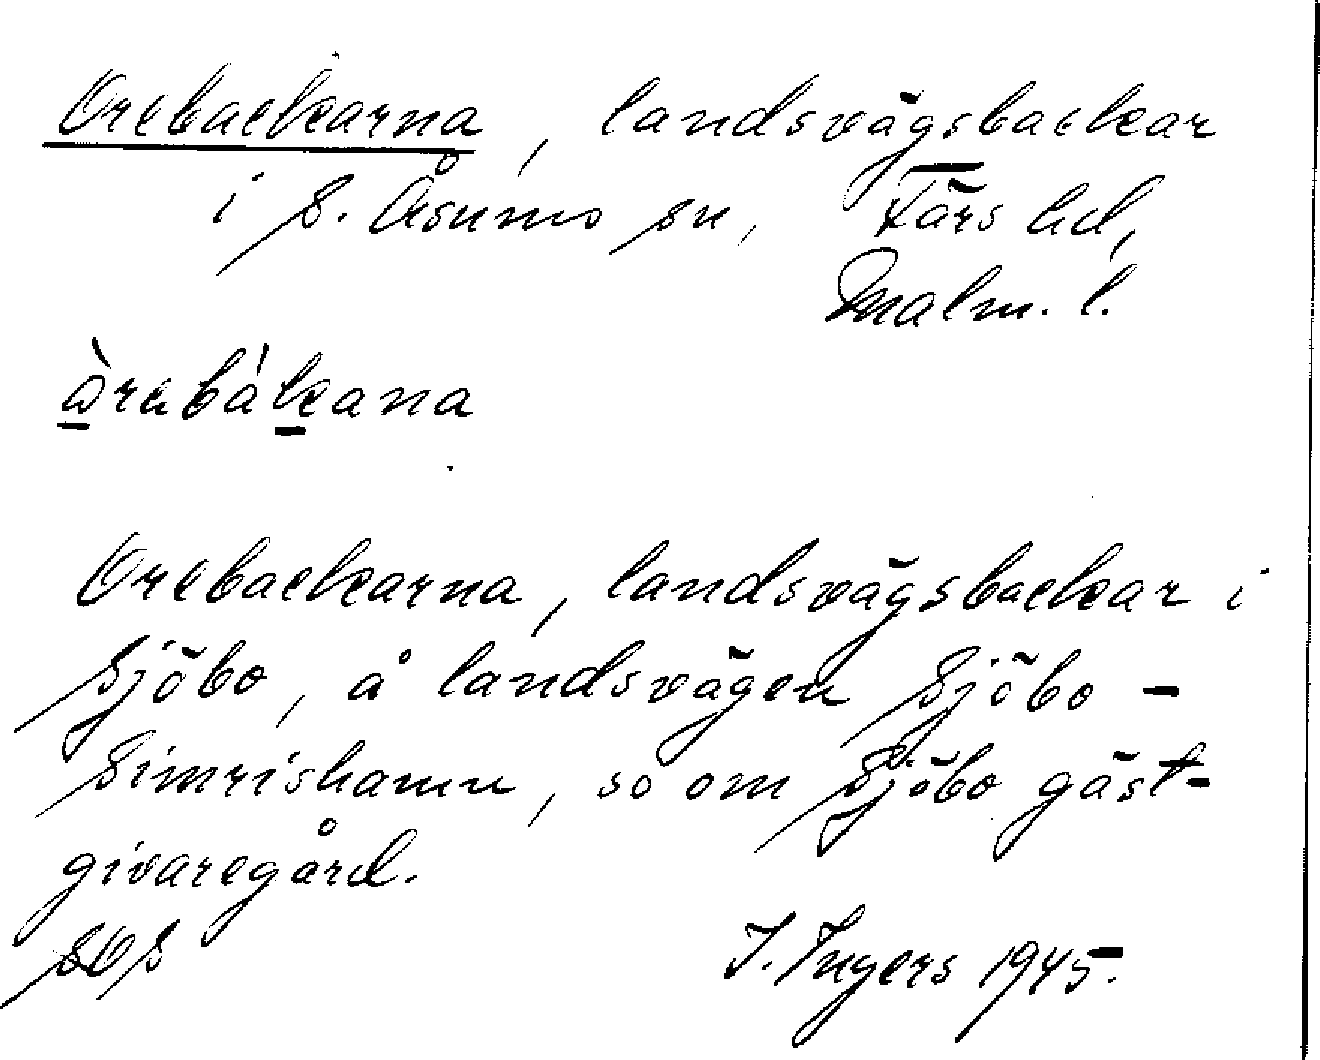 Orebackarna, landsvägsbackar
i S. Åsums sn, Färs hd,
Malm. l.
àrabákana
Orebackarna, landsvägsbackar i
Sjöbo, å landsvägen Sjöbo -
Simrishamn, so om Sjöbo gäst-
givaregård.
SOS I. Ingers 1945.